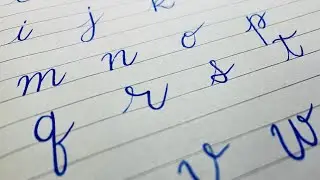 i j k
m n o p
q r s t
v w